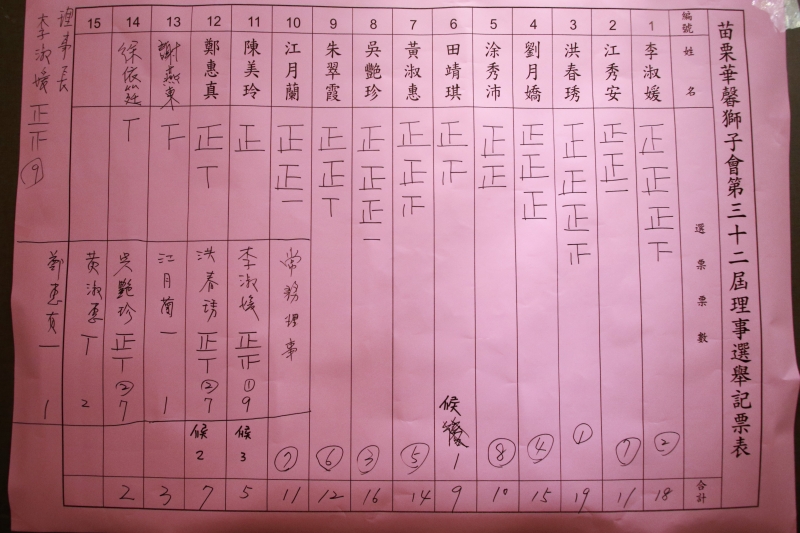 苗栗華馨獅子會第三十二屆理事選舉記票表
編號 姓名 選票數 合計
1 李淑媛 正正正下 ② 18
2 江秀安 正正一 ⑦ 11
3 洪春琇 正正正正 ① 19
4 劉月嬌 正正正 ④ 15
5 涂秀沛 正正 ⑧ 10
6 田靖琪 正正 候 1 9
7 黃淑惠 正正正 ⑤ 14
8 吳艷珍 正正正一 ③ 16
9 朱翠霞 正正丅 ⑥ 12
10 江月蘭 正正一 ⑦ 11
11 陳美玲 正 候3 5
12 鄭惠真 正丅 候2 7
13 謝燕東 下 3
14 徐依筳 丅 2
15
常務理事
李淑媛 正正 ① 9
洪春琇 正丅 ② 7
江月蘭 一 1
吳艷珍 正丅 ② 7
黃淑惠 丅 2
鄭惠真 一 1
理事長
李淑媛 正正 ⑨